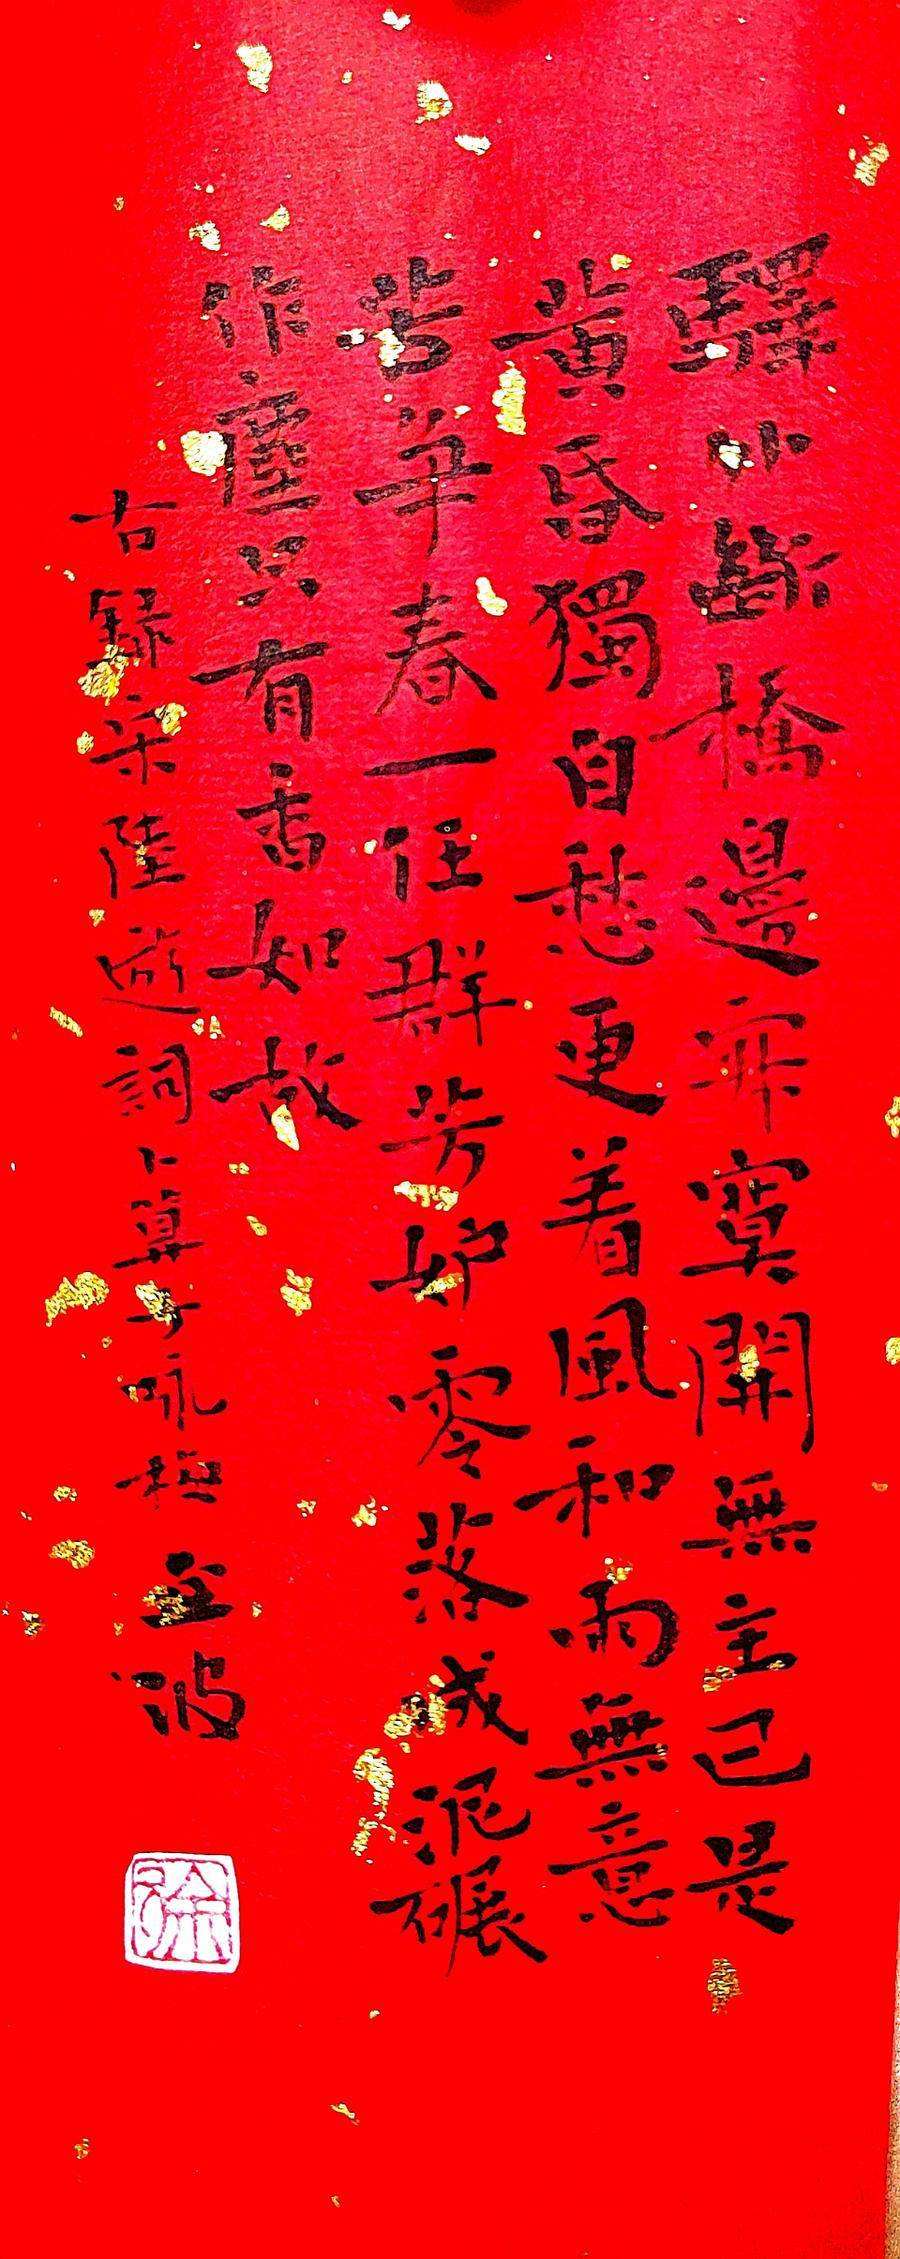 驛外斷橋邊寂寞開無主已是
黃昏獨自愁更着風和雨無意
苦爭春一任群芳妒零落成泥碾
作塵只有香如故
右録宋陸遊詞卜算子咏梅 波
徐